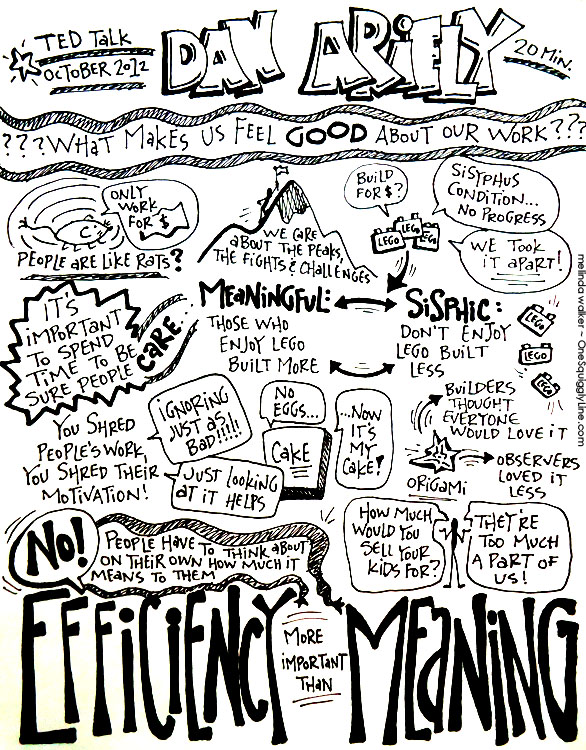 TED TALK
OCTOBER 2012
DAN ARIELY
20 MIN.
???WHAT MAKES US FEEL GOOD ABOUT OUR WORK???
ONLY
WORK
FOR $
PEOPLE ARE LIKE RATS?
WE CARE
ABOUT THE PEAKS,
THE FIGHTS & CHALLENGES
BUILD
FOR $?
LEGO
LEGO
LEGO
SISYPHUS
CONDITION...
NO PROGRESS
WE TOOK
IT APART!
melinda walker ~ OneSquigglyLine.com
IT'S
IMPORTANT
TO SPEND
TIME TO BE
SURE PEOPLE
CARE...
MEANINGFUL:
THOSE WHO
ENJOY LEGO
BUILT MORE
SISPHIC:
DON'T ENJOY
LEGO BUILT
LESS
LEGO
LEGO
LEGO
YOU SHRED
PEOPLE'S WORK,
YOU SHRED THEIR
MOTIVATION!
IGNORING
JUST AS
BAD!!!!!
JUST LOOKING
AT IT HELPS
NO
EGGS...
CAKE
...NOW
IT'S
MY
CAKE!
BUILDERS
THOUGHT
EVERYONE
WOULD LOVE IT
ORIGAMI
OBSERVERS
LOVED IT
LESS
NO!
PEOPLE HAVE TO THINK ABOUT
ON THEIR OWN HOW MUCH IT
MEANS TO THEM
HOW MUCH
WOULD YOU
SELL YOUR
KIDS FOR?
THEY'RE
TOO MUCH
A PART OF
US!
EFFICIENCY
MORE
IMPORTANT
THAN
MEANING